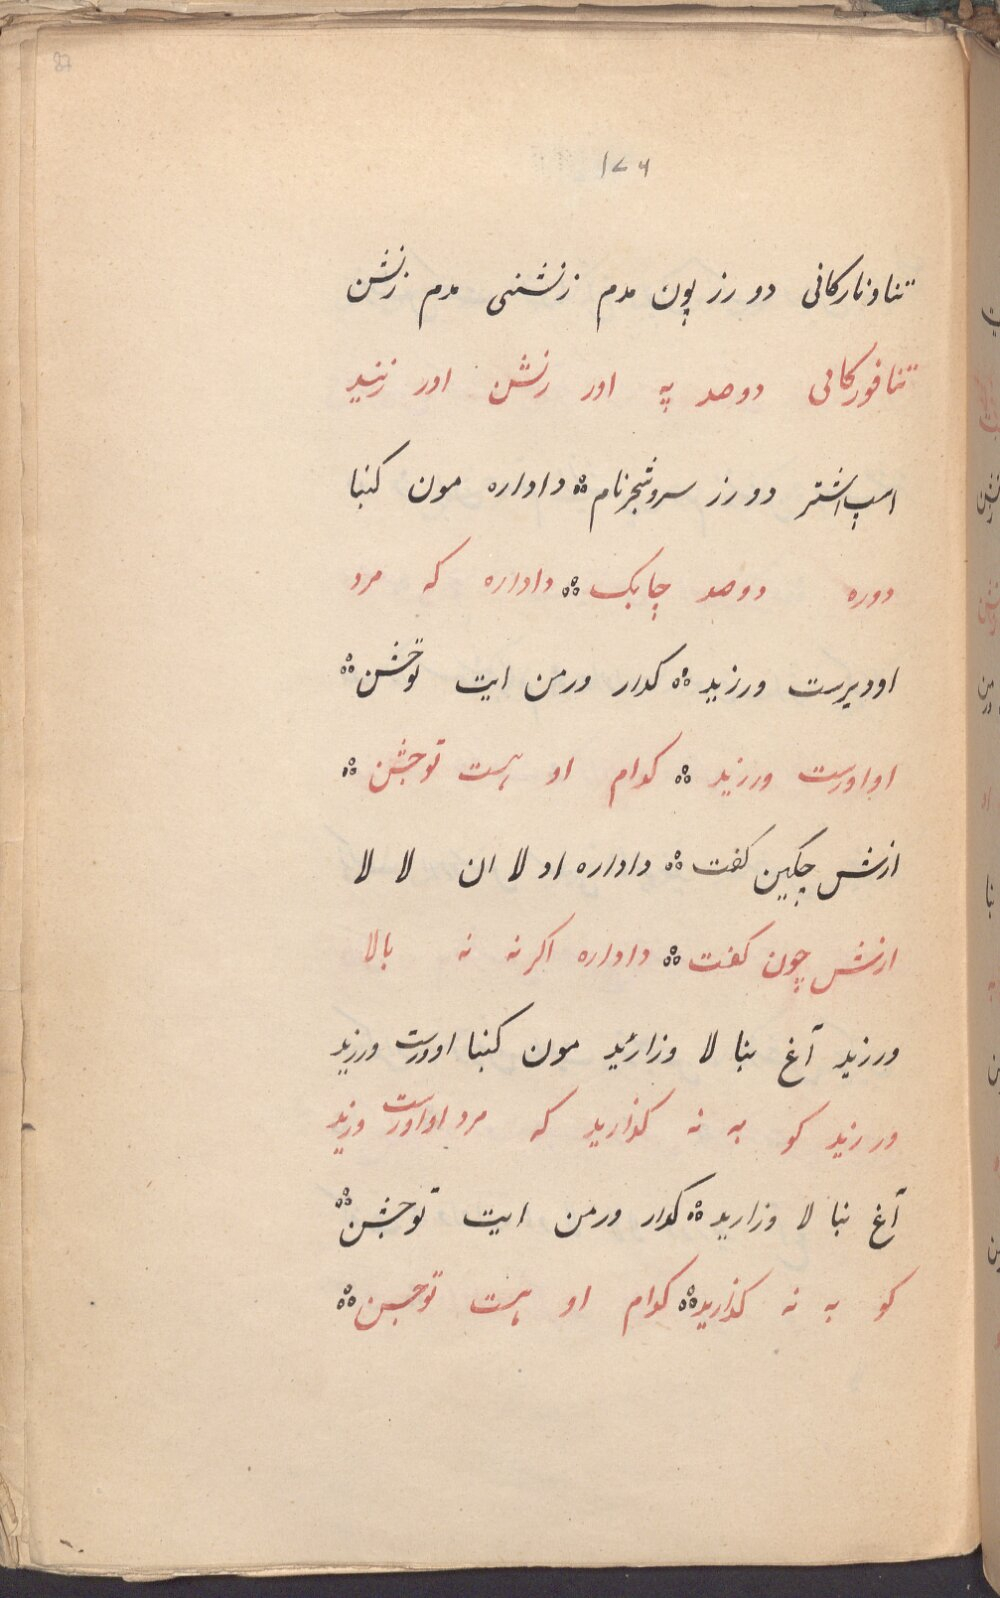 87
۱۷۶
تناونارکانی دو رز پون مدم زنشنی مدم زنشن
تنافورکانی دوصد په اور زنشن اور زنید
اسپ اشتر دو رز سروشچرنام ݬ داداره مون کنبا
دوره دوصد چابک داداره که مرد
اودیرست ورزید کدار ورمن ایت توخشن
اواورست ورزید کدام او هست توخشن
ازش چکین کفت داداره اد لا ان لا لا
ازش چون کفت داداره اکر نه نه بالا
ورزید آغ بنا لا وزارید مون کنبا اوورست ورزید
ورزید کو به نه کذارید که مرد اواورست ورزید
آغ بنا لا وزارید کدار ورمن ایت توخشن
کو به نه کذارید کدام او هست توخشن